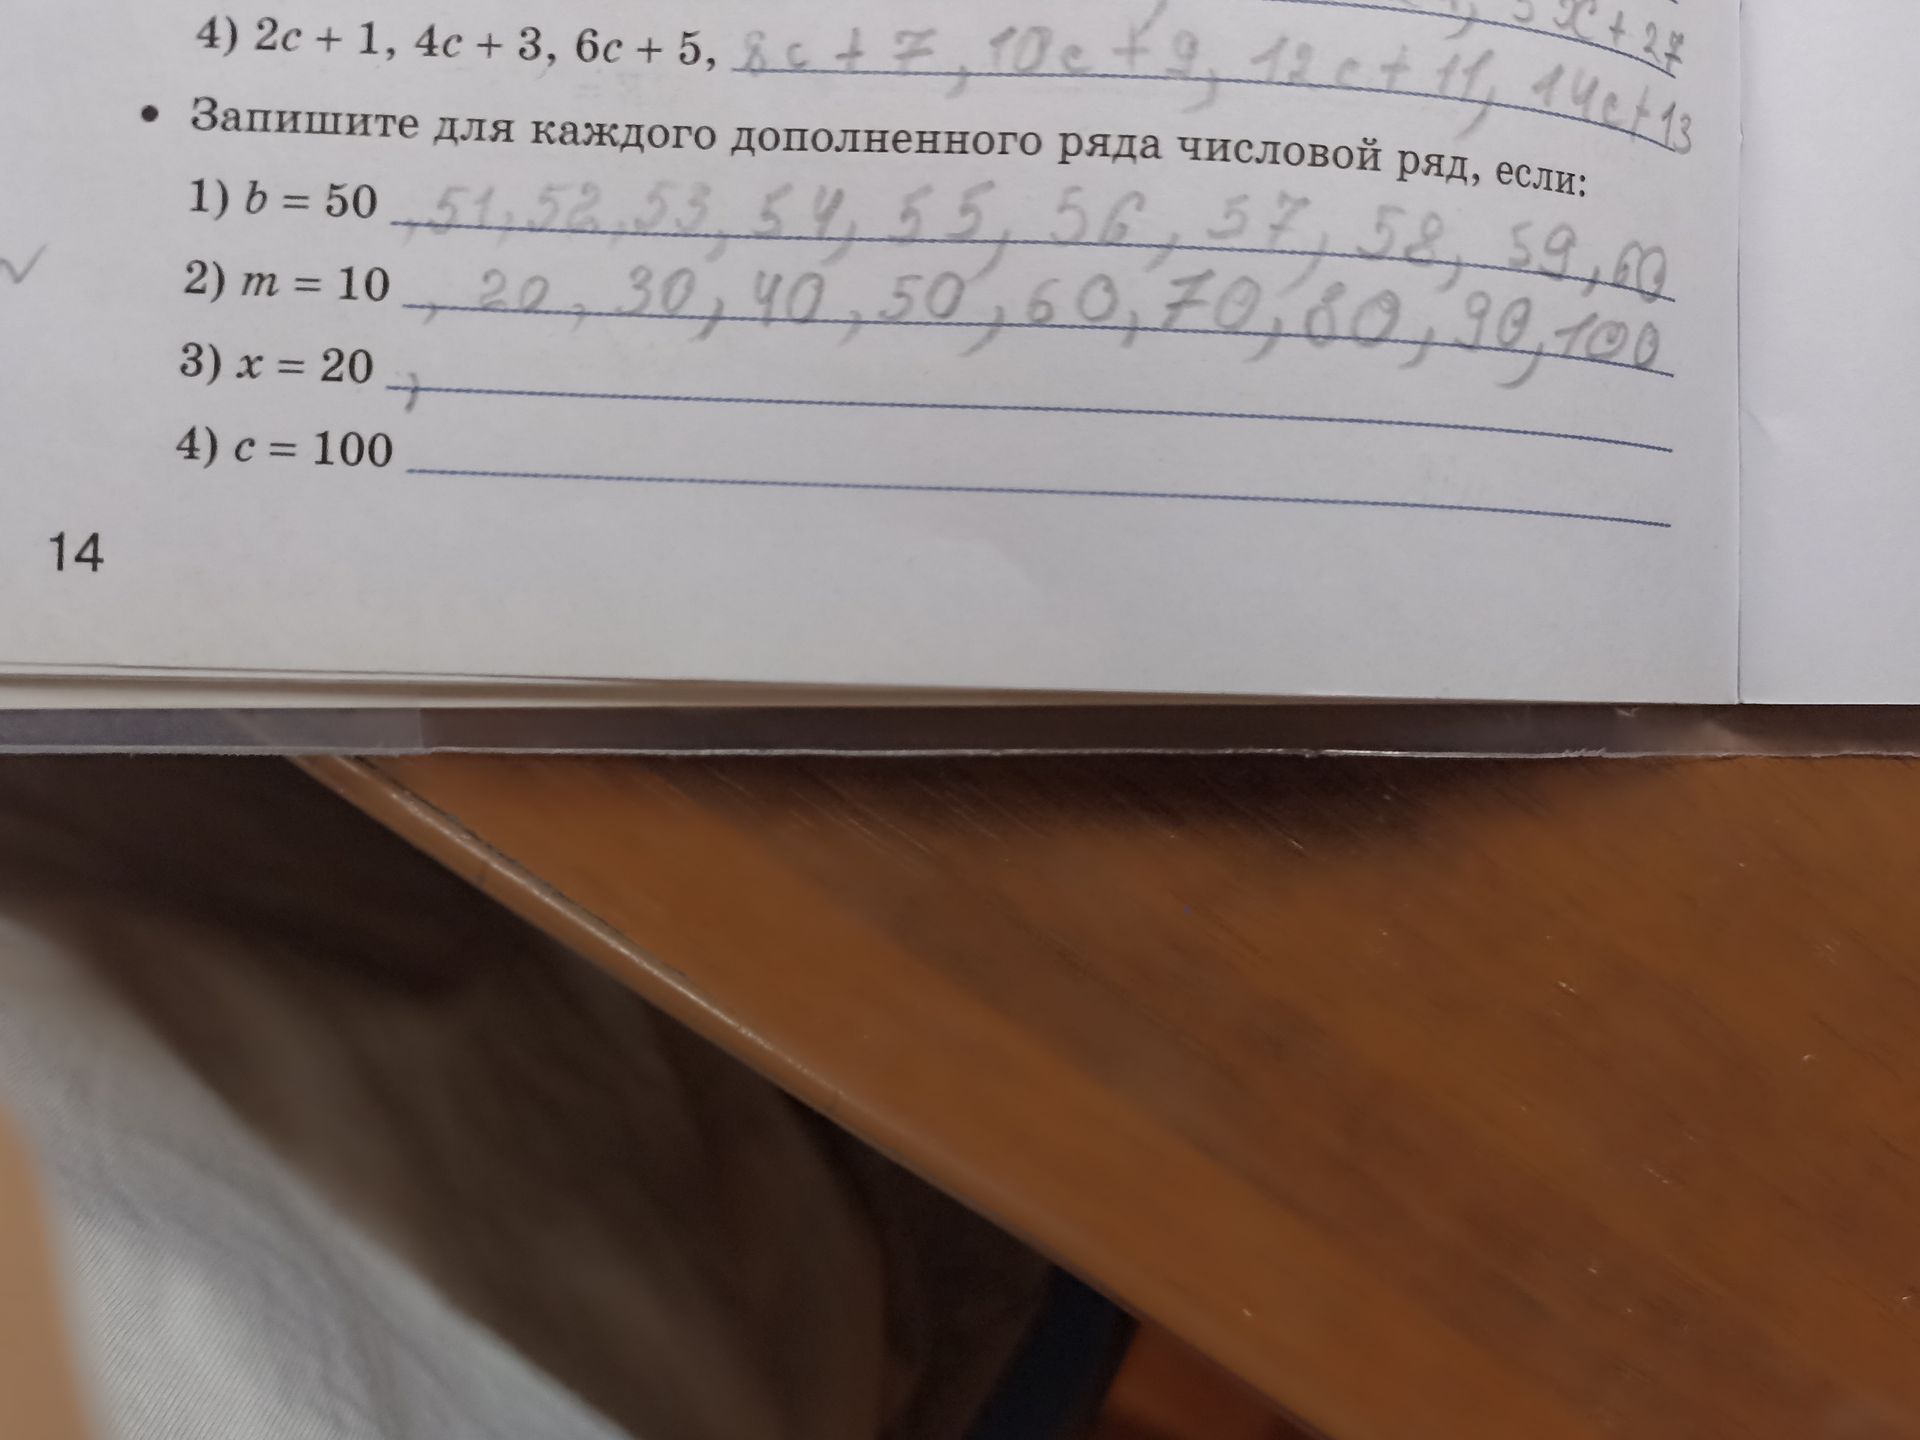 3x + 27
4) 2c + 1, 4c + 3, 6c + 5, 8c + 7, 10c + 9, 12c + 11, 14c + 13
• Запишите для каждого дополненного ряда числовой ряд, если:
1) b = 50 , 51, 52, 53, 54, 55, 56, 57, 58, 59, 60
2) m = 10 , 20, 30, 40, 50, 60, 70, 80, 90, 100
3) x = 20 ,
4) c = 100
14